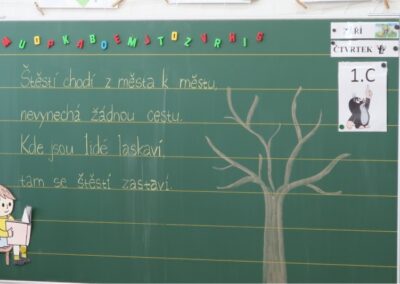 MUOPKABDEMJTOZVRHIS
ZÁŘÍ
ČTVRTEK
1.C
Štěstí chodí z města k městu,
nevynechá žádnou cestu.
Kde jsou lidé laskaví,
tam se štěstí zastaví.